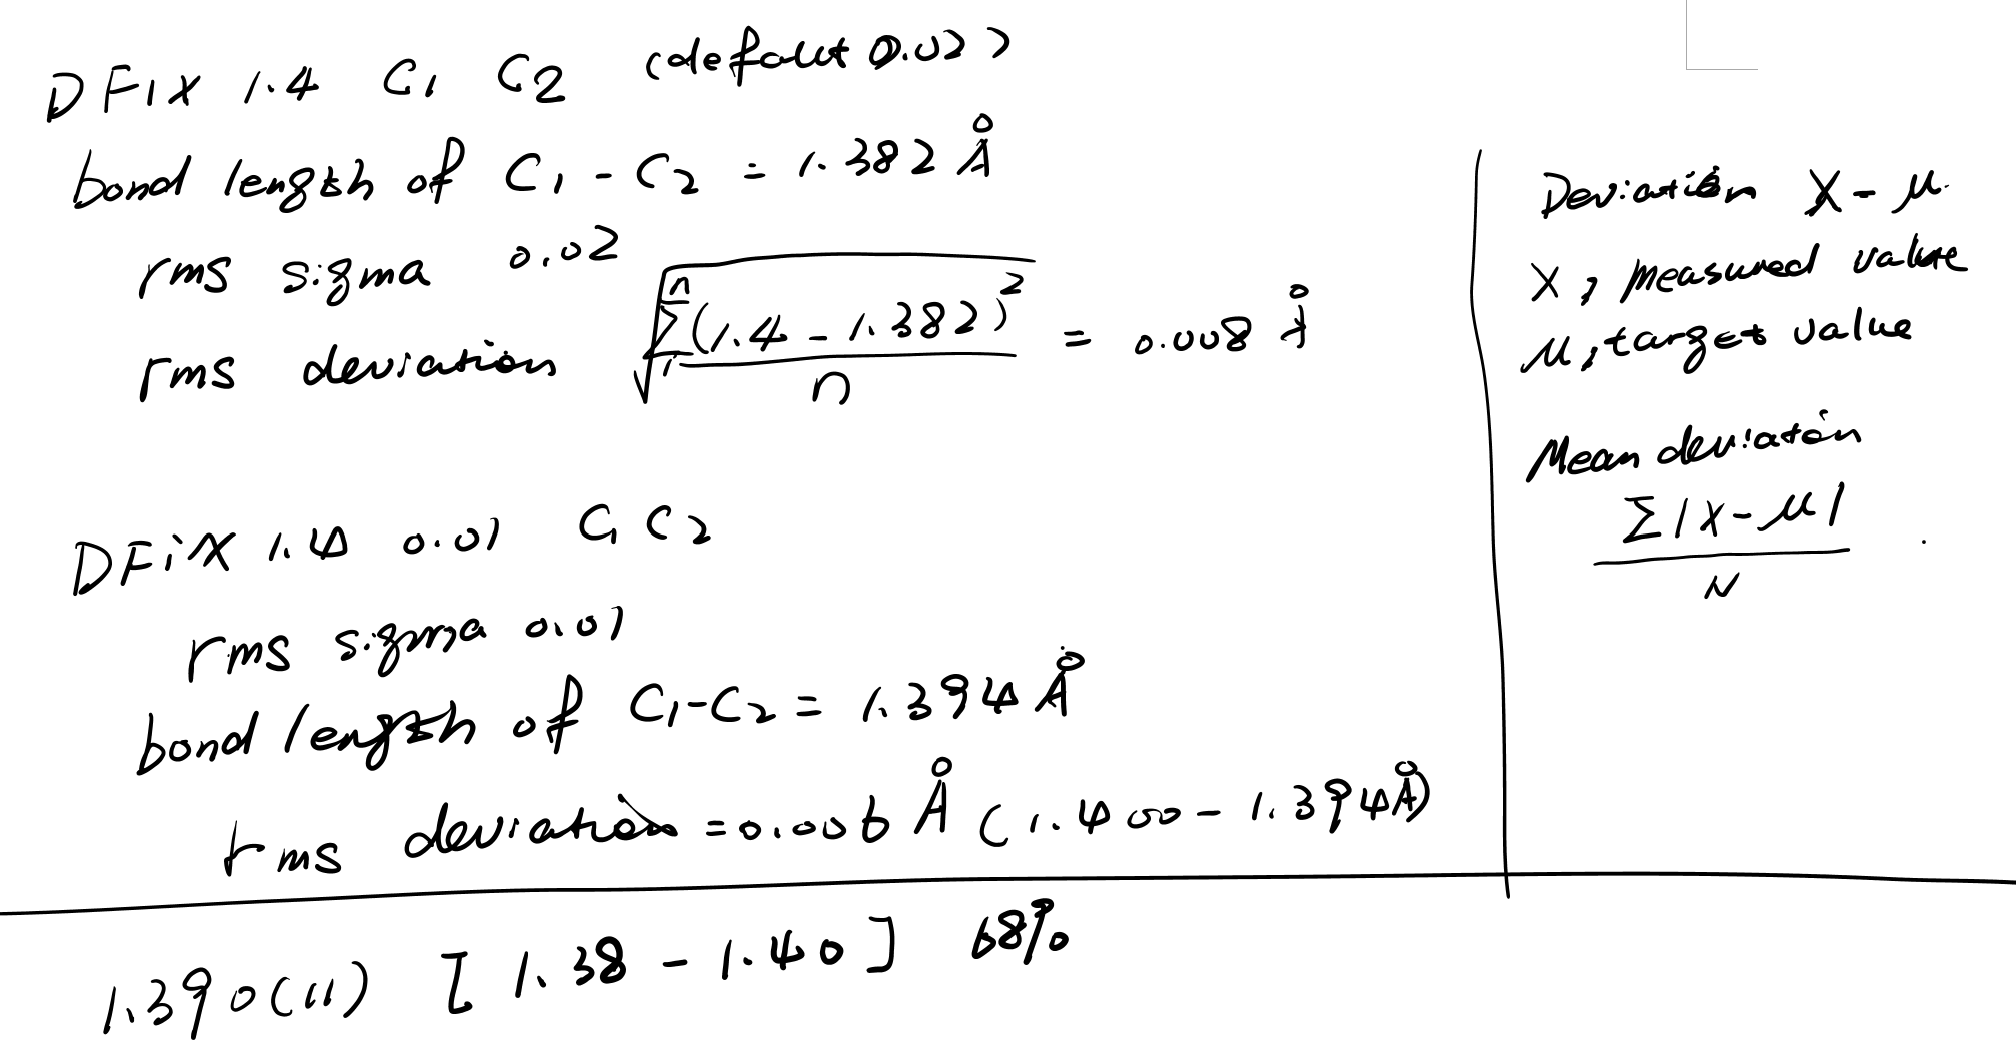 DFIX 1.4 C1 C2 (defalut 0.02)
bond length of C1 - C2 = 1.382 Å
rms sigma 0.02
rms deviation √(∑₁ⁿ(1.4 - 1.382)²/n) = 0.008 Å
DFiX 1.4 0.01 C1 C2
rms sigma 0.01
bond length of C1-C2 = 1.394 Å
rms deviation = 0.006 Å (1.400 - 1.394Å)
Deviation X - μ
X, measured value
μ, target value
Mean deviation
∑|X-μ|
N
1.390(11) [1.38 - 1.40] 68%